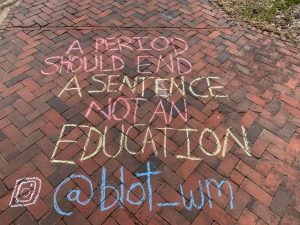 A PERIOD
SHOULD END
A SENTENCE
NOT AN
EDUCATION
@blot_wm